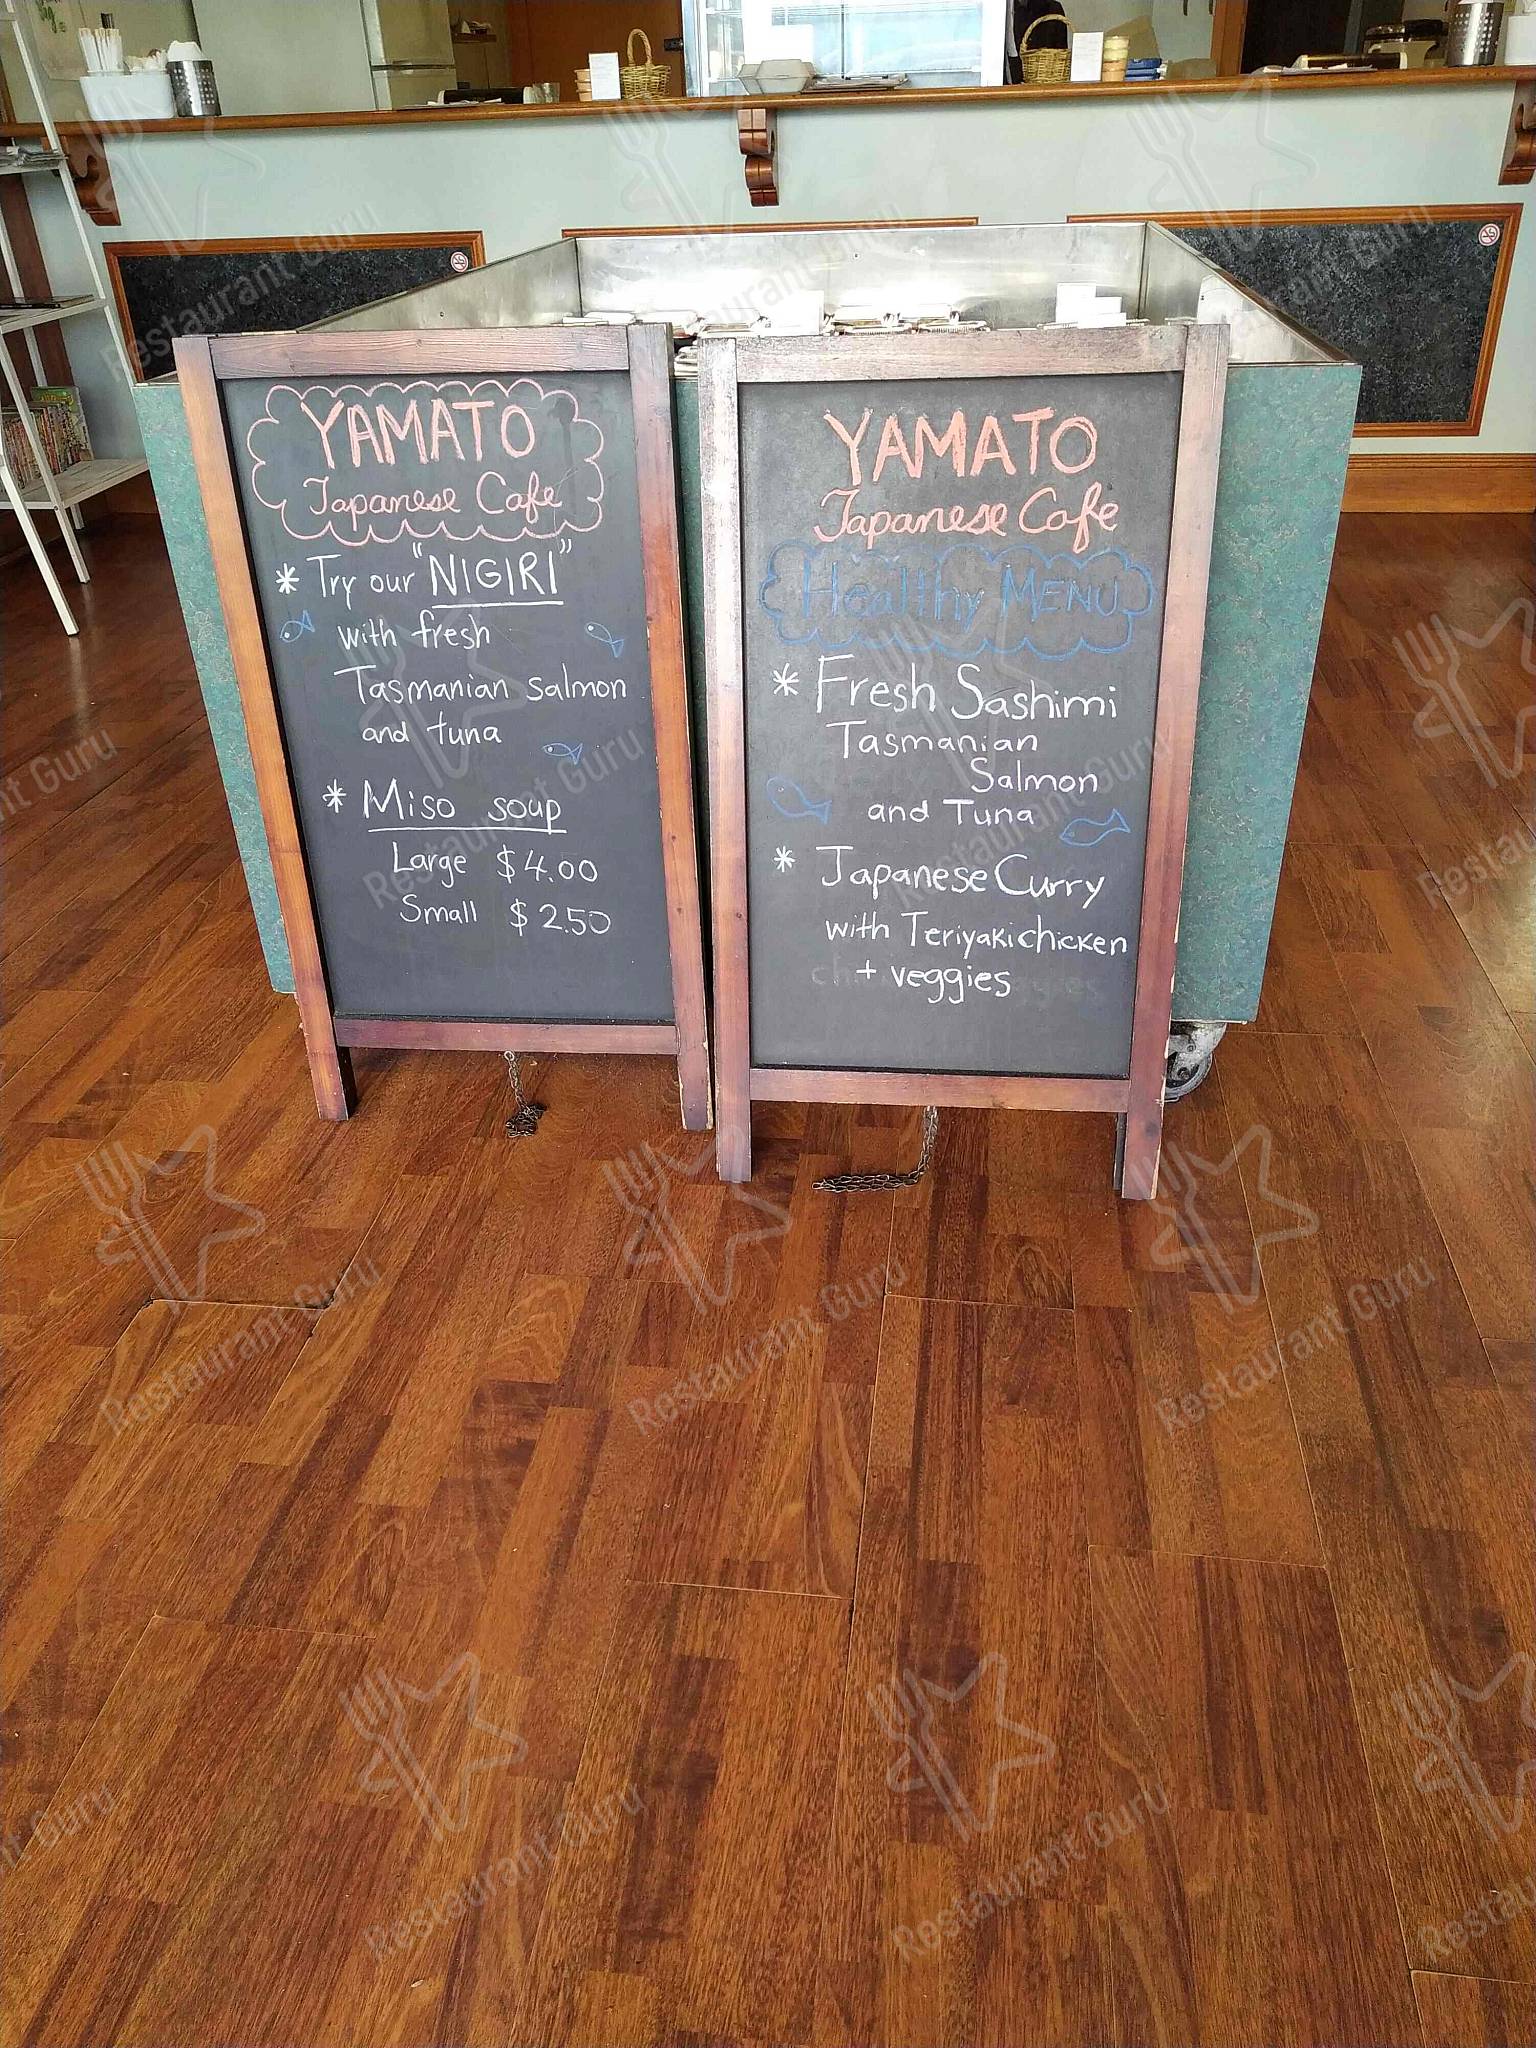 YAMATO
Japanese Cafe
* Try our "NIGIRI"
with fresh
Tasmanian salmon
and tuna
* Miso soup
Large $4.00
Small $2.50
YAMATO
Japanese Cafe
Healthy MENU
* Fresh Sashimi
Tasmanian
Salmon
and Tuna
* Japanese Curry
with Teriyaki chicken
+ veggies
Restaurant Guru